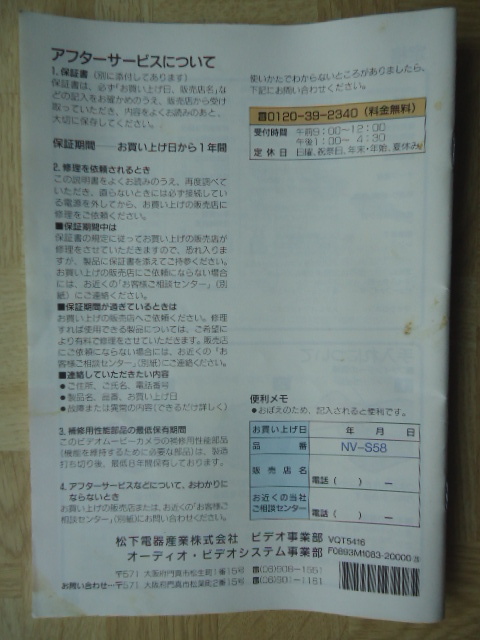 アフターサービスについて
1. 保証書(別に添付してあります)
保証書は、必ず「お買い上げ日、販売店名」な
どの記入をお確かめのうえ、販売店から受け
取っていただき、内容をよくお読みのあと、
大切に保存してください。
保証期間 お買い上げ日から1年間
2. 修理を依頼されるとき
この説明書をよくお読みのうえ、再度調べて
いただき、直らないときには必ず接続してい
る電源を外してから、お買い上げの販売店に
修理をご依頼ください。
■保証期間中は
保証書の規定に従ってお買い上げの販売店が
修理をさせていただきますので、恐れ入りま
すが、製品に保証書を添えてご持参ください。
お買い上げの販売店にご依頼にならない場合
には、お近くの「お客様ご相談センター」(別
紙)にご連絡ください。
■保証期間が過ぎているときは
お買い上げの販売店へご依頼ください。修理
すれば使用できる製品については、ご希望に
より有料で修理をさせていただきます。販売店
にご依頼にならない場合には、お近くの「お
客様ご相談センター」(別紙)にご連絡ください。
■連絡していただきたい内容
●ご住所、ご氏名、電話番号
●製品名、品番、お買い上げ日
●故障または異常の内容(できるだけ詳しく)
3. 補修用性能部品の最低保有期間
このビデオムービーカメラの補修用性能部品
(機能を維持するために必要な部品)は、製造
打ち切り後、最低8年間保有しております。
4. アフターサービスなどについて、おわかりに
ならないとき
お買い上げの販売店または、お近くの「お客様ご
相談センター」(別紙)にお問い合わせください。
使いかたでわからないところがありましたら、
下記にお問い合わせください。
0120-39-2340(料金無料)
受付時間 午前9:00〜12:00
午後1:00〜 4:30
定休日 日曜、祝祭日、年末・年始、夏休み
便利メモ
●おぼえのため、記入されると便利です。
お買い上げ日 年 月 日
品番 NV-S58
販売店名 電話( ) ー
お近くの当社
ご相談センター 電話( ) ー
松下電器産業株式会社 ビデオ事業部 VQT5416
オーディオ・ビデオシステム事業部 F0893M1083-20000
〒571 大阪府門真市松生町1番15号 ☎(06)908-1551
お問い合わせ…〒571 大阪府門真市松葉町2番15号 ☎(06)901-1161